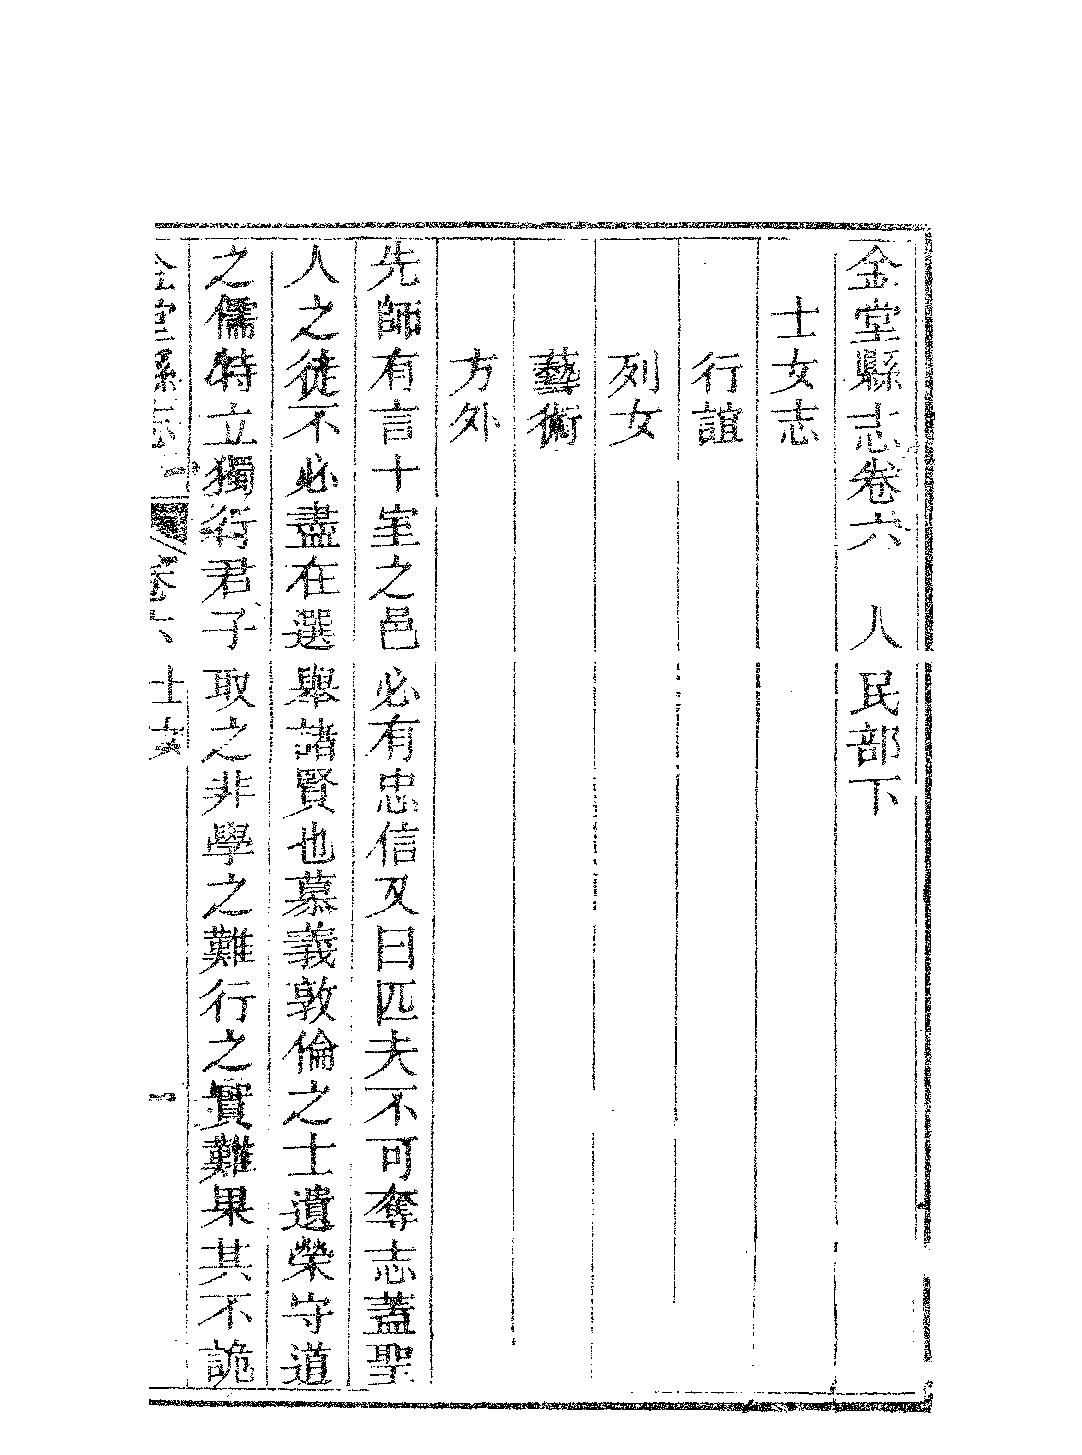 金堂縣志卷六　人民部下
士女志
行誼
列女
藝術
方外
先師有言十室之邑必有忠信又曰匹夫不可奪志蓋聖
人之徒不必盡在選舉諸賢也慕義敦倫之士遺榮守道
之儒特立獨行君子取之非學之難行之實難果其不詭
金堂縣志　卷六　士女　一